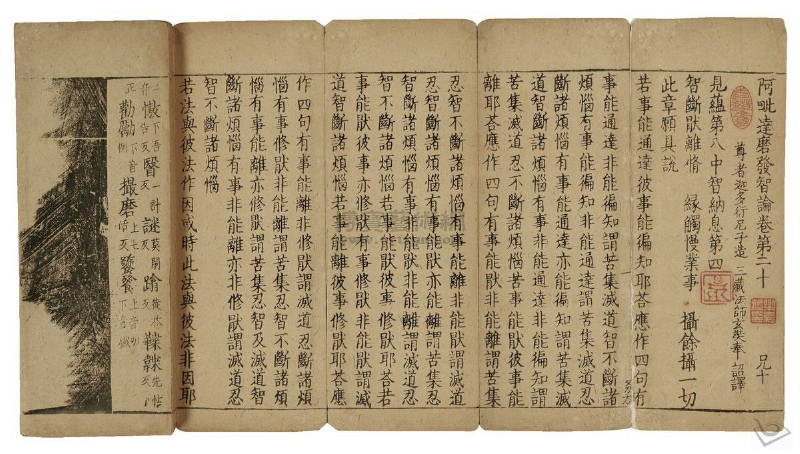 阿毗達磨發智論卷第二十 兄十
尊者迦多衍尼子造 三藏法師玄奘奉 詔譯
見蘊第八中智納息第四
智斷猒離脩 緣觸慢業事 攝餘攝一切
此章願具說
若事能通達彼事能徧知耶荅應作四句有
事能通達非能徧知謂苦集滅道忍智不斷諸
煩惱有事能徧知非能通達謂苦集滅
斷諸煩惱有事能通達亦能徧知謂苦集滅
道智斷諸煩惱有事非能通達非能徧知謂
苦集滅道忍不斷諸煩惱若事能猒彼事能
離耶荅應作四句有事能猒非能離謂苦集
忍智不斷諸煩惱有事能離非能猒謂滅道
忍智斷諸煩惱有事能猒亦能離謂苦集忍
智斷諸煩惱有事非能猒非能離謂滅道忍
智不斷諸煩惱若事能猒彼事修猒耶荅若
事能猒彼亦修猒有事修猒非能猒謂滅
道智斷諸煩惱若事能離彼事修猒耶荅應
作四句有事能離非修猒謂滅道忍斷諸煩
惱有事修猒非能離謂苦集忍智不斷諸煩
惱有事能離亦修猒謂苦集忍智及滅道智
斷諸煩惱有事非能離亦非修猒謂滅道忍
智不斷諸煩惱
若法與彼法作因或時此法與彼法非因耶